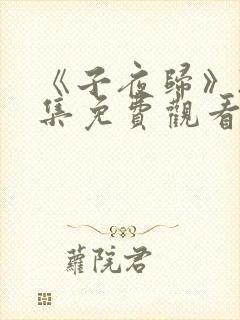 《子夜歸》
集免費觀看
蘿院君